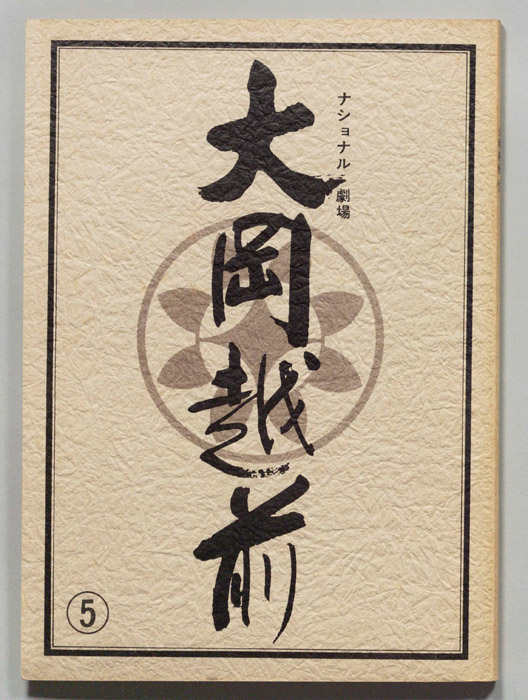 ナショナル劇場
大岡越前
5